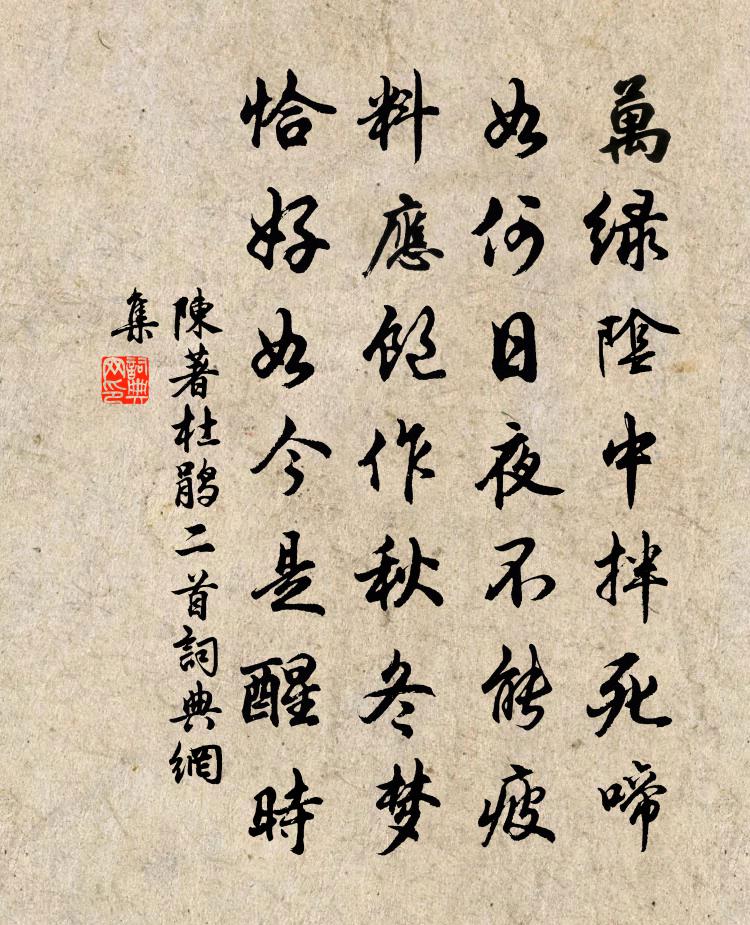 萬绿陰中拌死啼
如何日夜不能疲
料應飽作秋冬梦
恰好如今是醒時
陳著杜鹃二首詞典網
集
詞典
网印